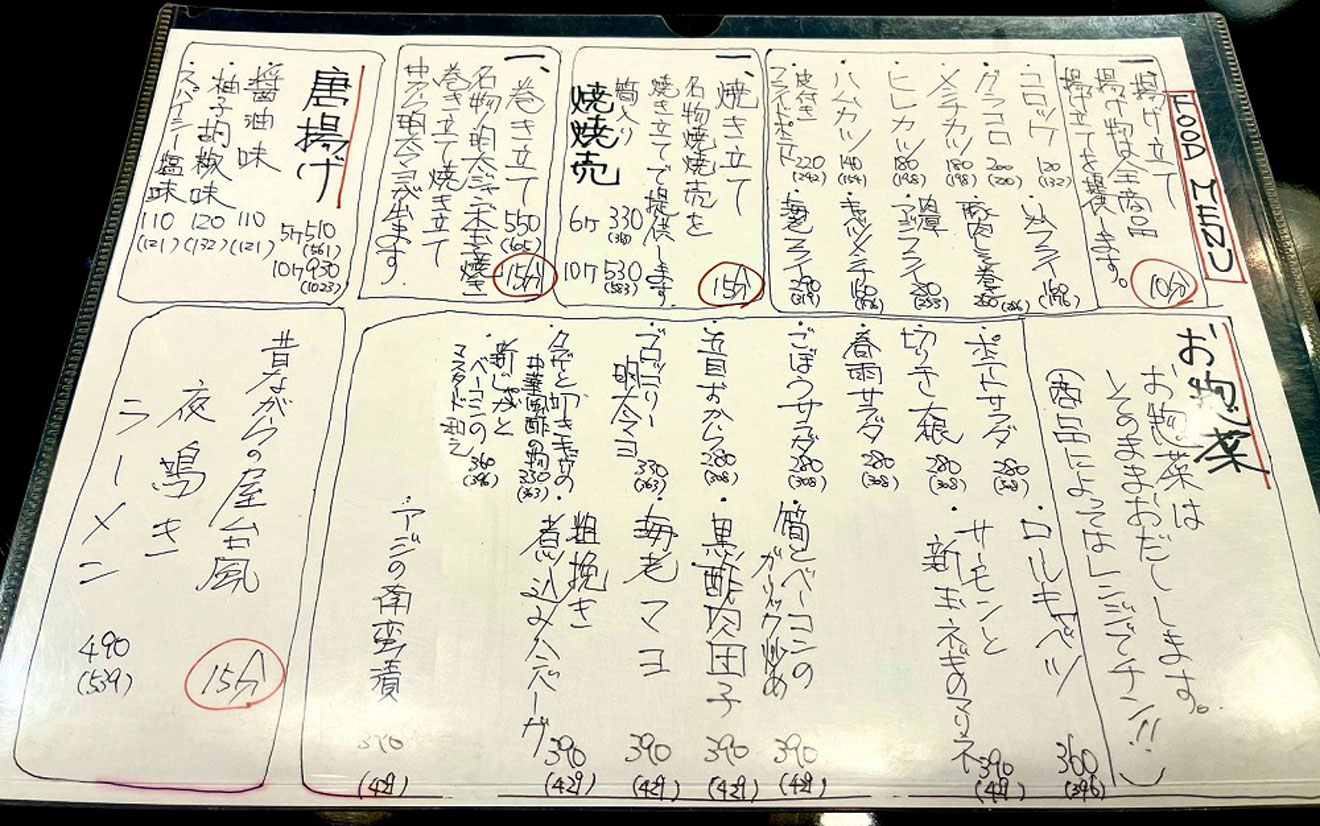 FOOD MENU
一、揚げ立て
揚げ物は全商品
揚げ立てを提供します。
10分
・コロッケ 120 (132)
・グラコロ 200 (220)
・メンチカツ 180 (198)
・ヒレカツ 180 (198)
・ハムカツ 140 (154)
・皮付きフライドポテト 220 (242)
・イカフライ 160 (176)
・豚肉しそ巻 260 (286)
・肉厚アジフライ 230 (253)
・キャベツメンチ 160 (176)
・海老フライ 290 (319)
一、焼き立て
名物焼焼売を
焼き立てで提供します。
15分
筒入り
焼焼売
6ケ 330
10ケ 530 (583)
一、巻き立て 550 (605)
名物!明太チーズ玉子焼き
巻き立て焼き立て
中から明太マヨが出ます。
15分
唐揚げ
5ケ 510 (561)
10ケ 930 (1023)
・醤油味 110 (121)
・柚子胡椒味 120 (132)
・スパイシー塩味 110 (121)
お惣菜
お惣菜は
そのままおだしします。
(商品によってはレンジでチン!!)
・ポテトサラダ 280 (308)
・切り干大根 280 (308)
・春雨サラダ 280 (308)
・ごぼうサラダ 280 (308)
・五目おから 280 (308)
・ブロッコリー明太マヨ 330 (363)
・タコと叩き胡瓜の
中華風酢の物 330 (363)
・新じゃがと
ベーコンの
マスタード和え 360 (396)
・ロールキャベツ 360 (396)
・サーモンと
新玉ネギのマリネ 390 (429)
・筍とベーコンの
ガーリック炒め 390 (429)
・黒酢肉団子 390 (429)
・海老マヨ 390 (429)
・粗挽き
煮込みハンバーグ 390 (429)
・アジの南蛮漬 390 (429)
昔ながらの屋台風
夜鳴き
ラーメン
490
(539)
15分